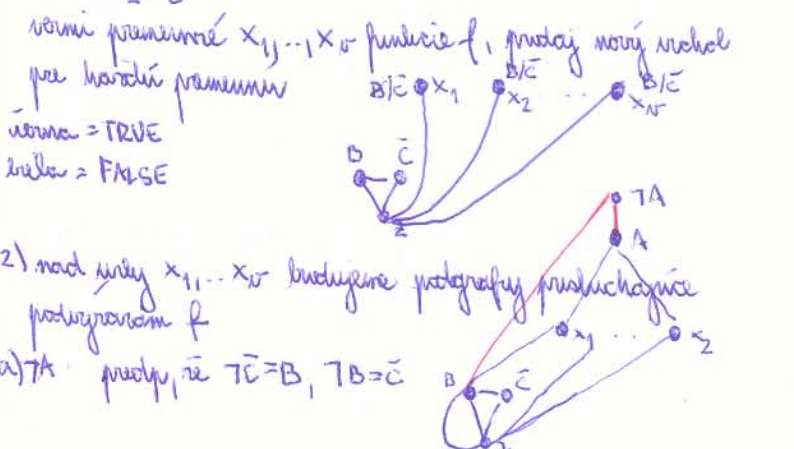 vezmi premenné x₁,..,xᵥ funkcie f, pridaj nový vrchol
pre každú premennú
B/C̄ x₁ B/C̄ x₂ .. B/C̄ xᵥ
čierna = TRUE
biela = FALSE
B C̄
Z
¬A
A
2) nad uzly x₁,.. xᵥ budujeme podgrafy prislúchajúce
podvýrazom f
x₁ .. x₂
a) ¬A predp, že ¬C̄=B, ¬B=C̄
B C̄